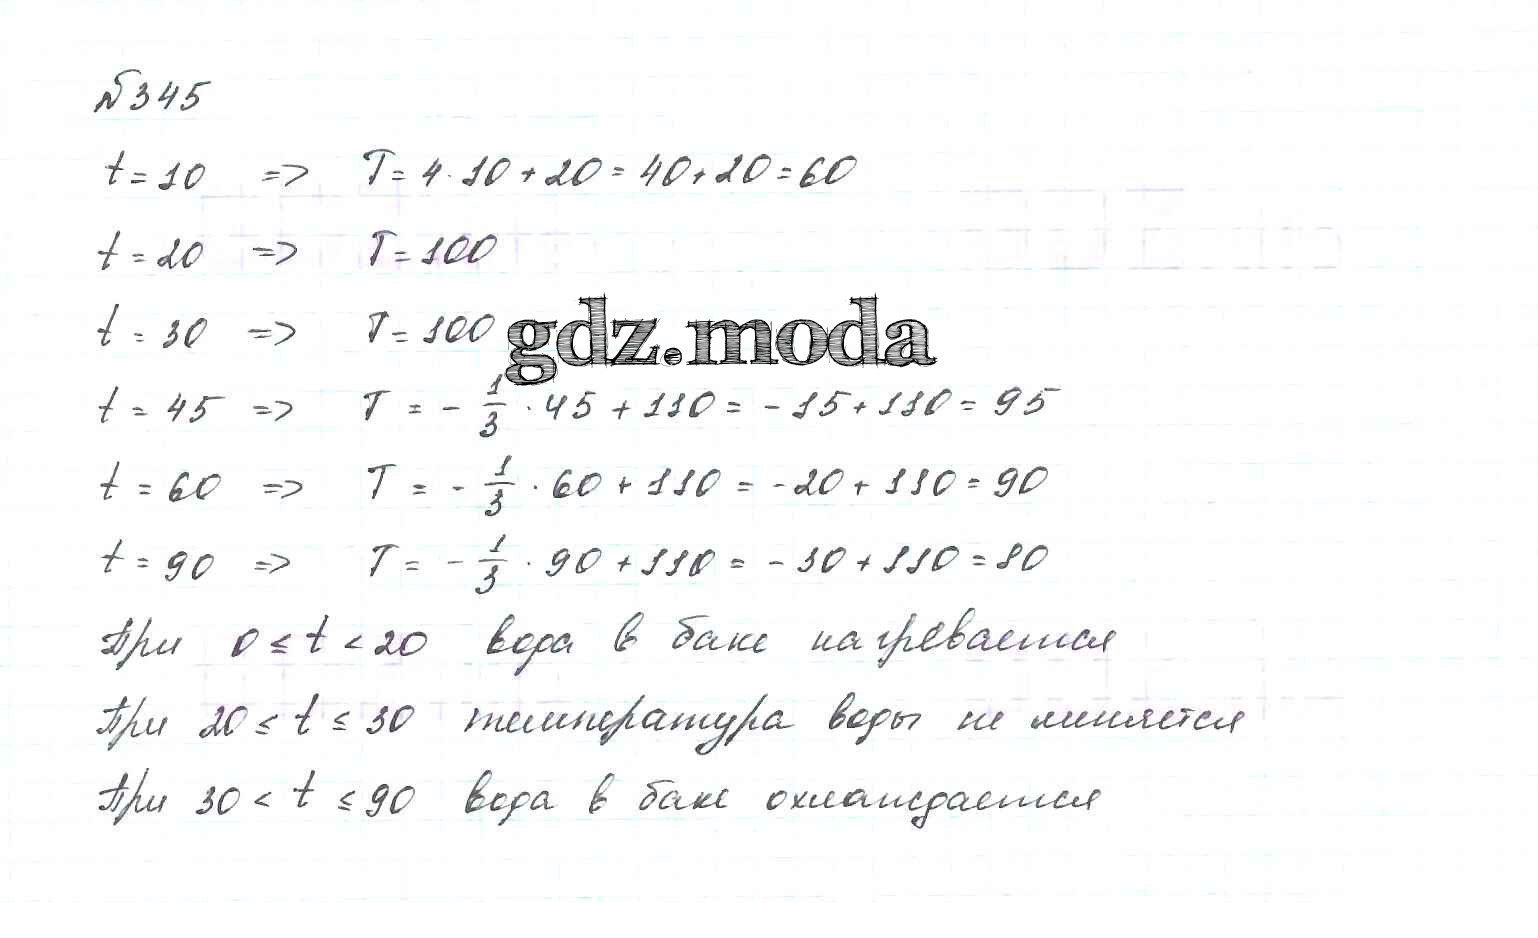 №345
t = 10 => T = 4 · 10 + 20 = 40 + 20 = 60
t = 20 => T = 100
t = 30 => T = 100
gdz.moda
t = 45 => T = - 1/3 · 45 + 110 = - 15 + 110 = 95
t = 60 => T = - 1/3 · 60 + 110 = - 20 + 110 = 90
t = 90 => T = - 1/3 · 90 + 110 = - 30 + 110 = 80
При 0 ≤ t < 20 вода в баке нагревается
При 20 ≤ t ≤ 30 температура воды не меняется
При 30 < t ≤ 90 вода в баке охлаждается